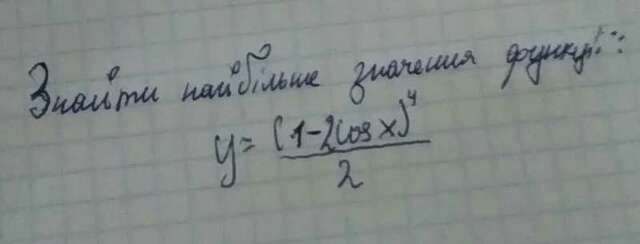 Знайти найбільше значення функції:
y = (1-2cos x)⁴
2